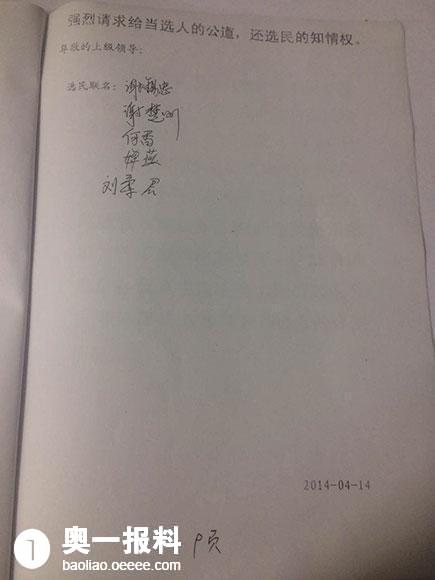 强烈请求给当选人的公道，还选民的知情权。
尊敬的上级领导：
选民联名：谢锦忠
谢楚州
何雷
婵燕
刘季君
2014-04-14
9页
1 奥一报料
baoliao.oeeee.com